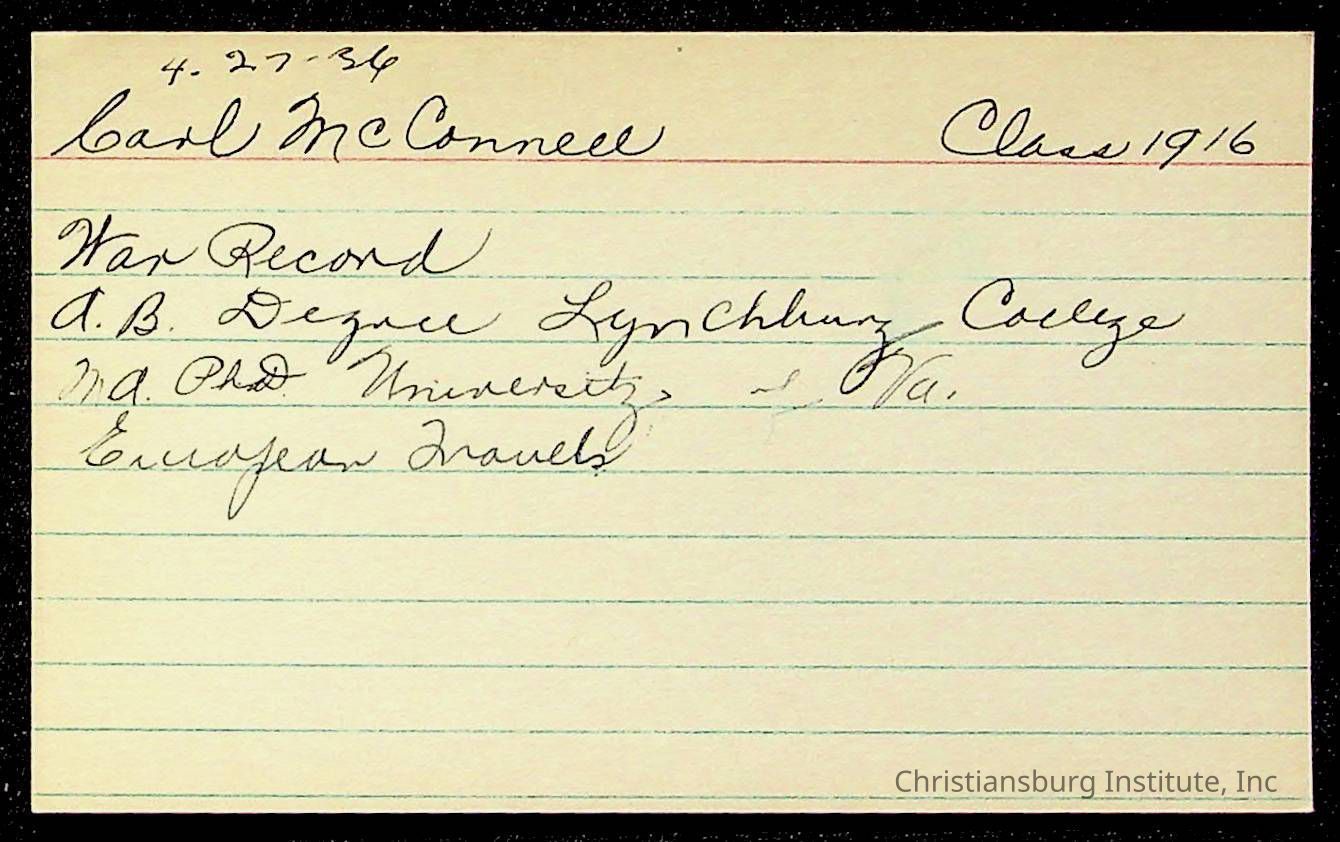 4-27-36
Carl McConnell Class 1916
War Record
A.B. Degree Lynchburg College
M.A. PhD. University of Va.
European Travels
Christiansburg Institute, Inc